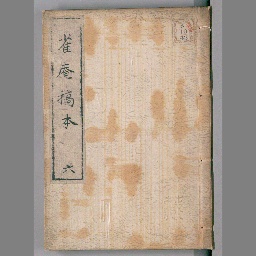 雀庵稿本 六